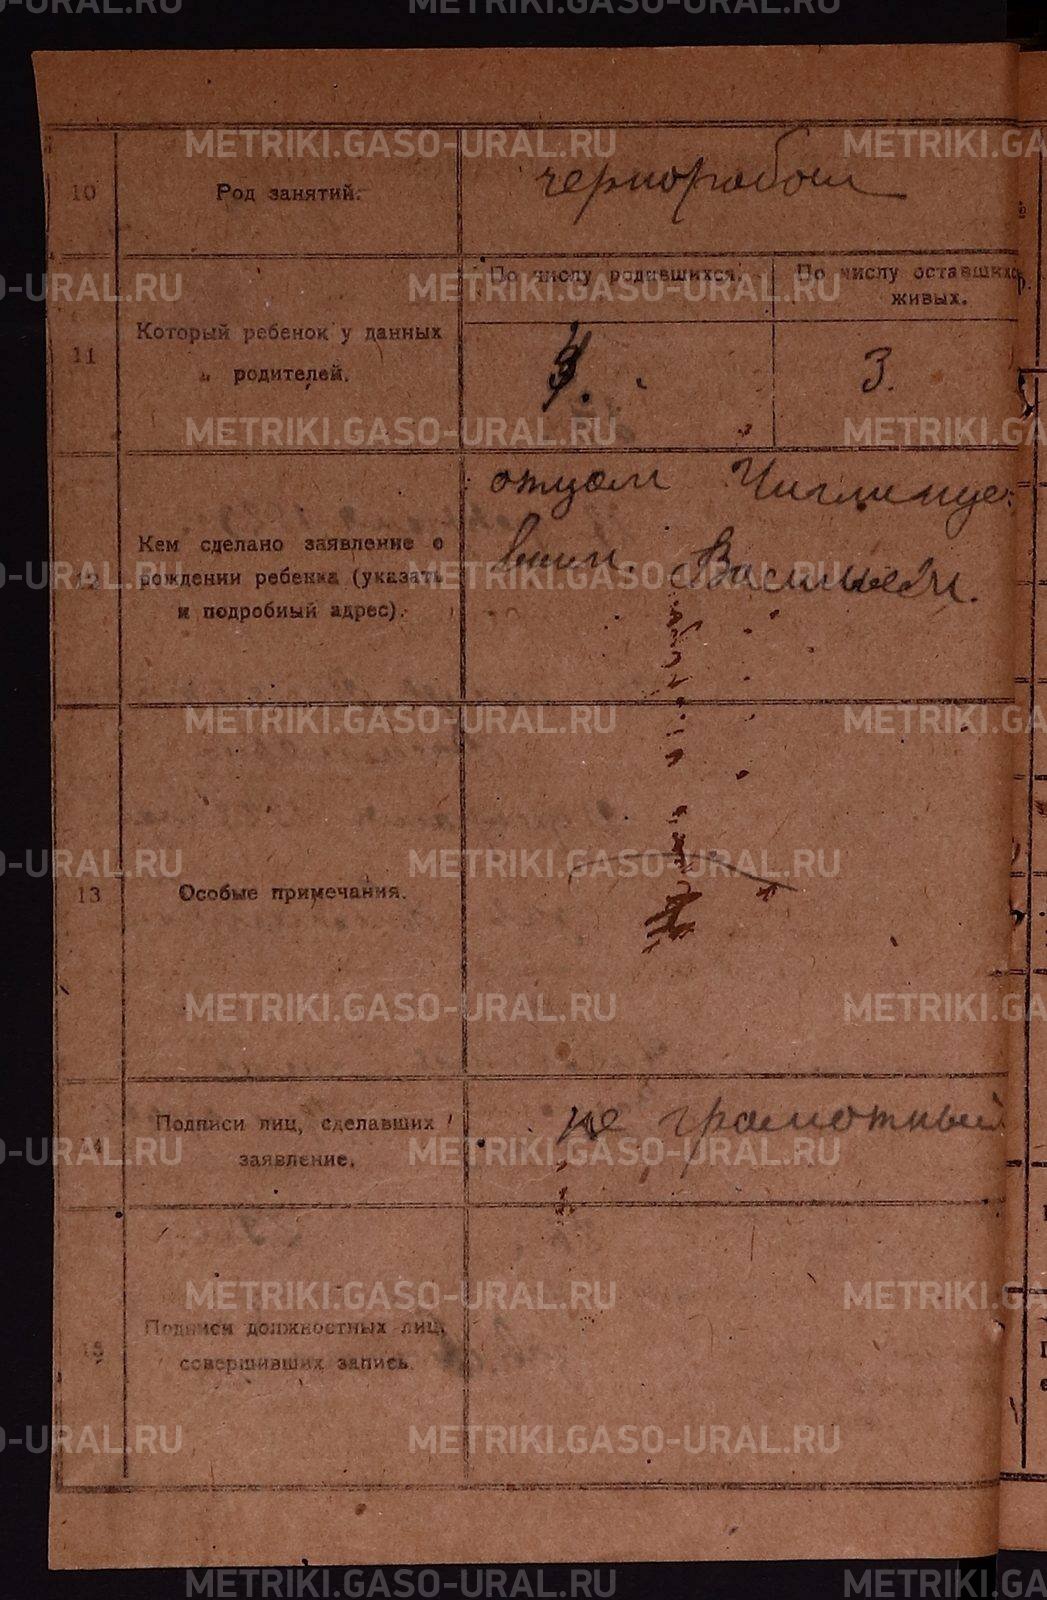 METRIKI.GASO-URAL.RU
10 Род занятий. чернорабоч
11 Который ребенок у данных родителей.
По числу родившихся.
4.
По числу оставшихся живых.
3.
12 Кем сделано заявление о рождении ребенка (указать и подробный адрес).
отцом
Васильем.
13 Особые примечания.
14 Подписи лиц, сделавших заявление.
не грамотный
15 Подписи должностных лиц, совершивших запись.